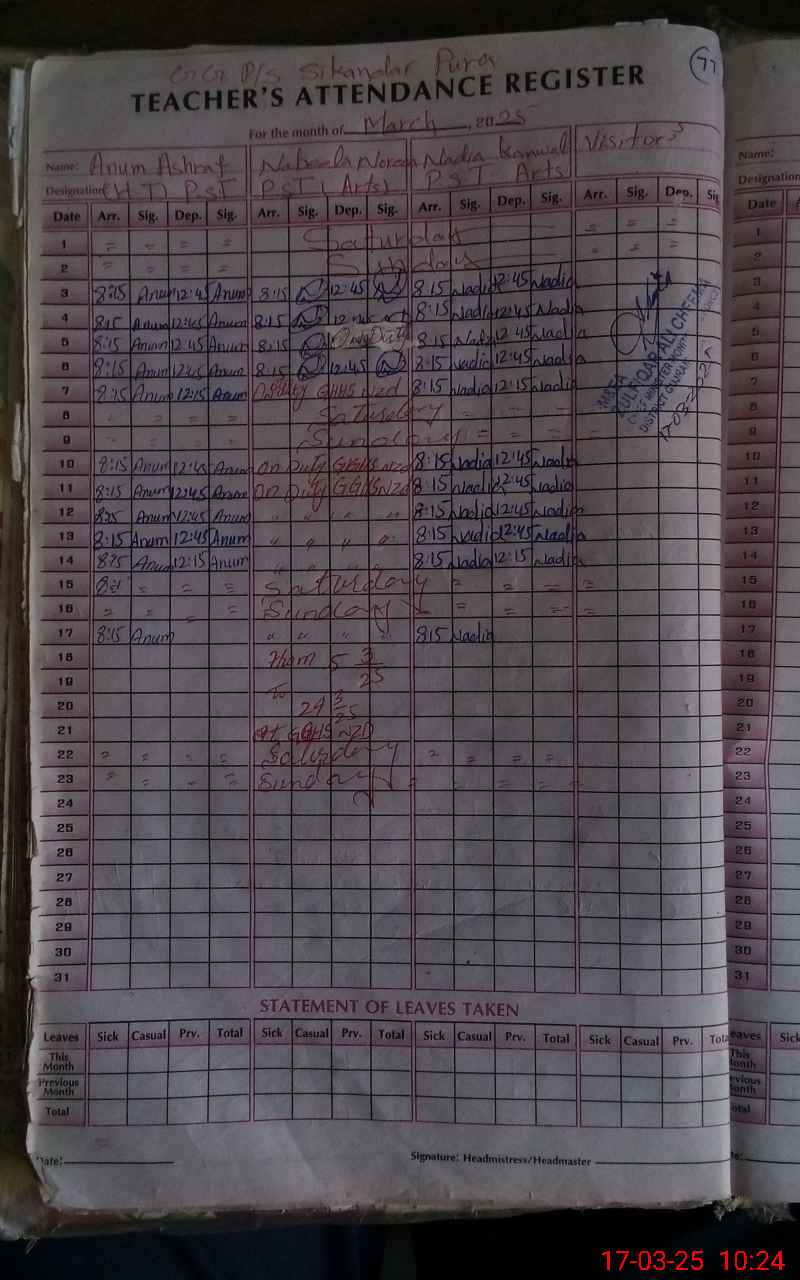 GG P/S Sikandar Pura
TEACHER'S ATTENDANCE REGISTER
77
For the month of March, 2025
Name: Anum Ashraf Nabeela Noreen Nadia Kanwal Visitors
Designation (H.T) P.S.T P.S.T (Arts) P.S.T. Arts
Date Arr. Sig. Dep. Sig. Arr. Sig. Dep. Sig. Arr. Sig. Dep. Sig. Arr. Sig. Dep. Sig
1 = = = = Saturday = = =
2 = = = = Sunday = = =
3 8:15 Anum 12:45 Anum 8:15 12:45 8:15 Nadia 12:45 Nadia
4 8:15 Anum 12:45 Anum 8:15 8:15 Nadia 12:45 Nadia
5 8:15 Anum 12:45 Anum 8:15 On Duty 8:15 Nadia 12:45 Nadia
6 8:15 Anum 12:45 Anum 8:15 12:45 8:15 Nadia 12:45 Nadia
7 8:15 Anum 12:15 Anum On Duty GGHS NZD 8:15 Nadia 12:15 Nadia
8 Saturday
9 Sunday
10 8:15 Anum 12:45 Anum On Duty GGHS NZD 8:15 Nadia 12:45 Nadia
11 8:15 Anum 12:45 Anum On Duty GGHS NZD 8:15 Nadia 12:45 Nadia
12 8:15 Anum 12:45 Anum " " " " 8:15 Nadia 12:45 Nadia
13 8:15 Anum 12:45 Anum " " " " 8:15 Nadia 12:45 Nadia
14 8:15 Anum 12:15 Anum " " " " 8:15 Nadia 12:15 Nadia
15 = = = Saturday = = = = =
16 = = = Sunday = = = =
17 8:15 Anum " " " " 8:15 Nadia
18 From 5 3
19 25
To
20 24 3/25
21 At GGHS NZD
22 = = = = Saturday = = = =
23 = = = = Sunday = = = =
24
25
26
27
28
29
30
31
MEA
ZULFIQAR ALI CHEEMA
CHIEF MINISTER MONITORING
DISTRICT GUJRAT
17-03-2025
STATEMENT OF LEAVES TAKEN
Leaves Sick Casual Prv. Total Sick Casual Prv. Total Sick Casual Prv. Total Sick Casual Prv. Tota
This Month
Previous Month
Total
Date:
Signature: Headmistress/Headmaster
Name:
Designation
Date
1
2
3
4
5
6
7
8
9
10
11
12
13
14
15
16
17
18
19
20
21
22
23
24
25
26
27
28
29
30
31
eaves Sick
This
onth
evious
onth
otal
17-03-25 10:24